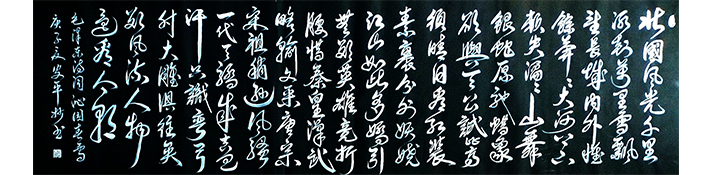 北國風光千里
冰封萬里雪飄
望長城内外惟
餘莽々大河上下
頓失滔々山舞
銀蛇原馳蠟象
欲與天公試比高
須晴日看紅裝
素裹分外妖嬈
江山如此多嬌引
無數英雄競折
腰惜秦皇漢武
略輸文采唐宗
宋祖稍遜風騷
一代天驕成吉思
汗只識彎弓
射大雕俱往矣
數風流人物
還看今朝
毛澤東詩詞沁園春雪
庚子夏安平書